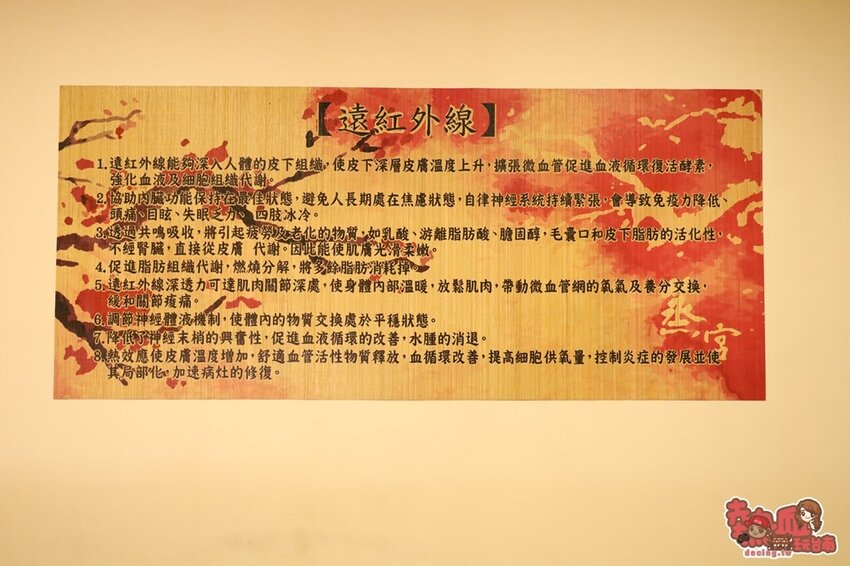 【遠紅外線】
1.遠紅外線能夠深入人體的皮下組織,使皮下深層皮膚溫度上升,擴張微血管促進血液循環復活酵素,
強化血液及細胞組織代謝。
2.協助內臟功能保持在最佳狀態,避免人長期處在焦慮狀態,自律神經系統持續緊張,會導致免疫力降低、
頭痛、目眩、失眠乏力、四肢冰冷。
3.透過共鳴吸收,將引起疲勞及老化的物質,如乳酸、游離脂肪酸、膽固醇,毛囊口和皮下脂肪的活化性,
不經腎臟,直接從皮膚 代謝。因此能使肌膚光滑柔嫩。
4.促進脂肪組織代謝,燃燒分解,將多餘脂肪消耗掉。
5.遠紅外線深透力可達肌肉關節深處,使身體內部溫暖,放鬆肌肉,帶動微血管網的氧氣及養分交換,
緩和關節痠痛。
6.調節神經體液機制,使體內的物質交換處於平穩狀態。
7.降低了神經末梢的興奮性,促進血液循環的改善,水腫的消退。
8.熱效應使皮膚溫度增加,舒適血管活性物質釋放,血循環改善,提高細胞供氧量,控制炎症的發展並使
其局部化,加速病灶的修復。
蒸宮
熱血玩台南
decing.tw